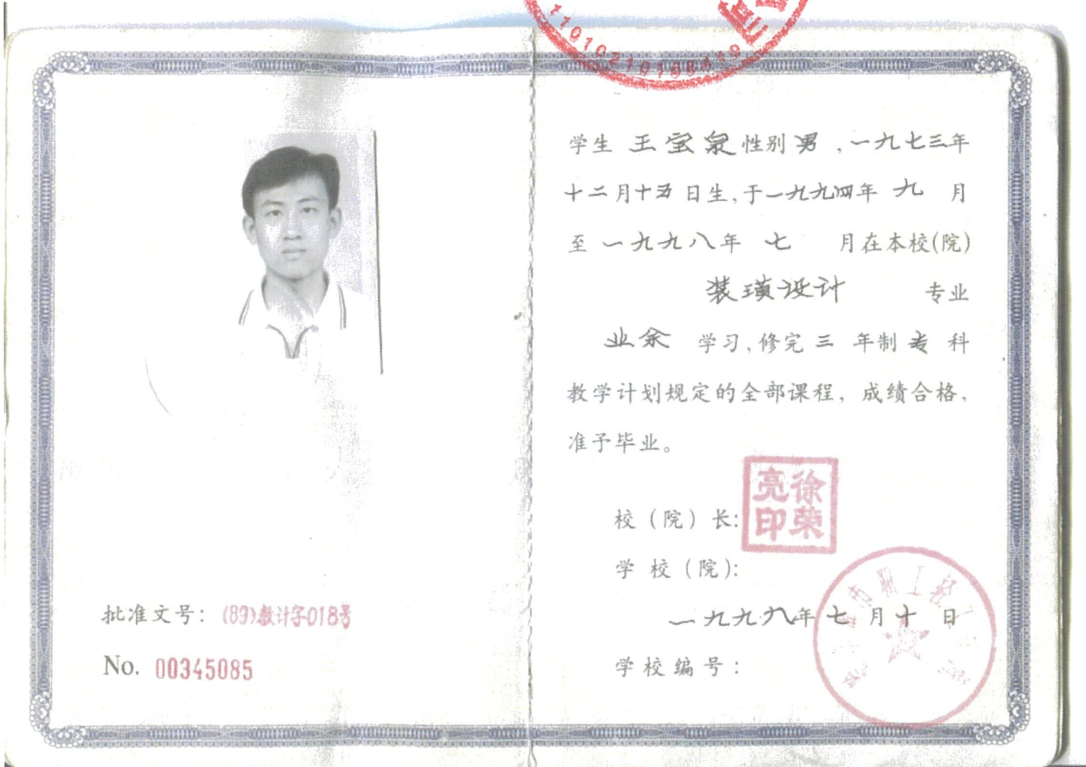 11010210168419
批准文号：(89)教计字018号
No. 00345085
学生 王宝泉 性别 男，一九七三年
十二月十五日生，于一九九四年 九 月
至 一九九八年 七 月在本校(院)
装璜设计 专业
业余 学习，修完 三 年制 专 科
教学计划规定的全部课程，成绩合格，
准予毕业。
校（院）长：
徐荣亮印
学 校（院）：
一九九八年 七 月 十 日
学校编号：